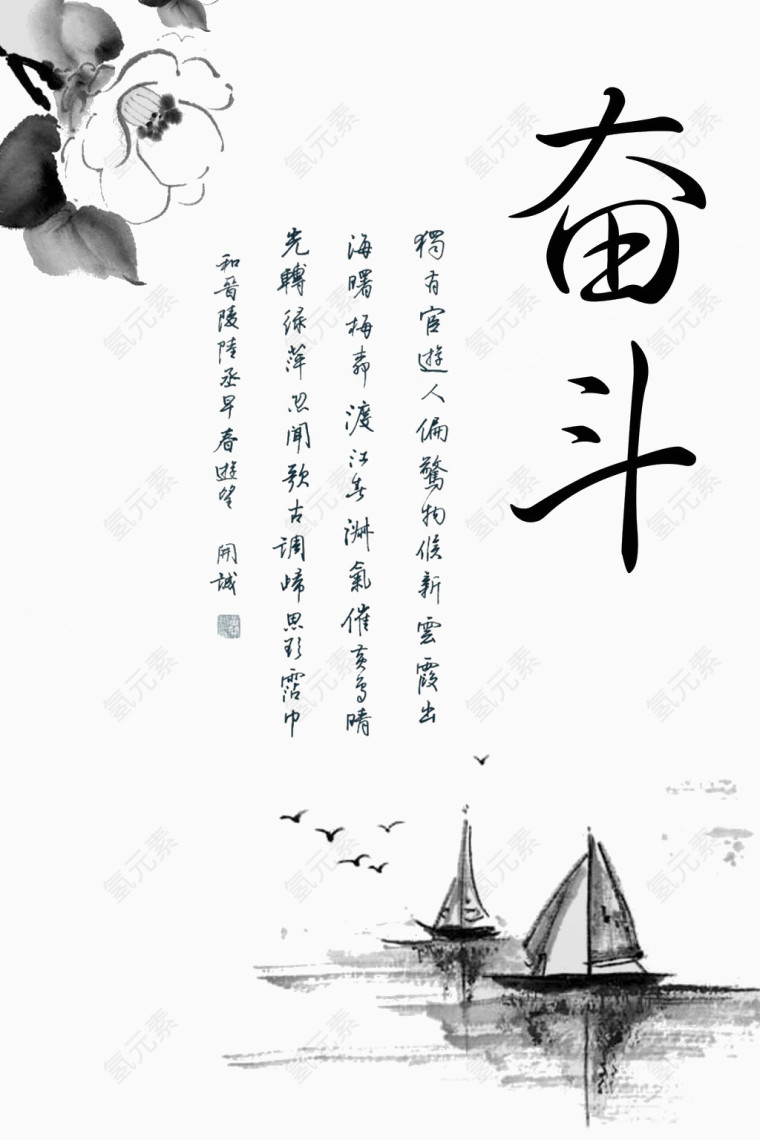 奋斗
獨有宦遊人偏驚物候新雲霞出
海曙梅柳渡江春淑氣催黃鳥晴
光轉綠蘋忽聞歌古調歸思欲霑巾
和晉陵陸丞早春遊望 開誠
氢元素